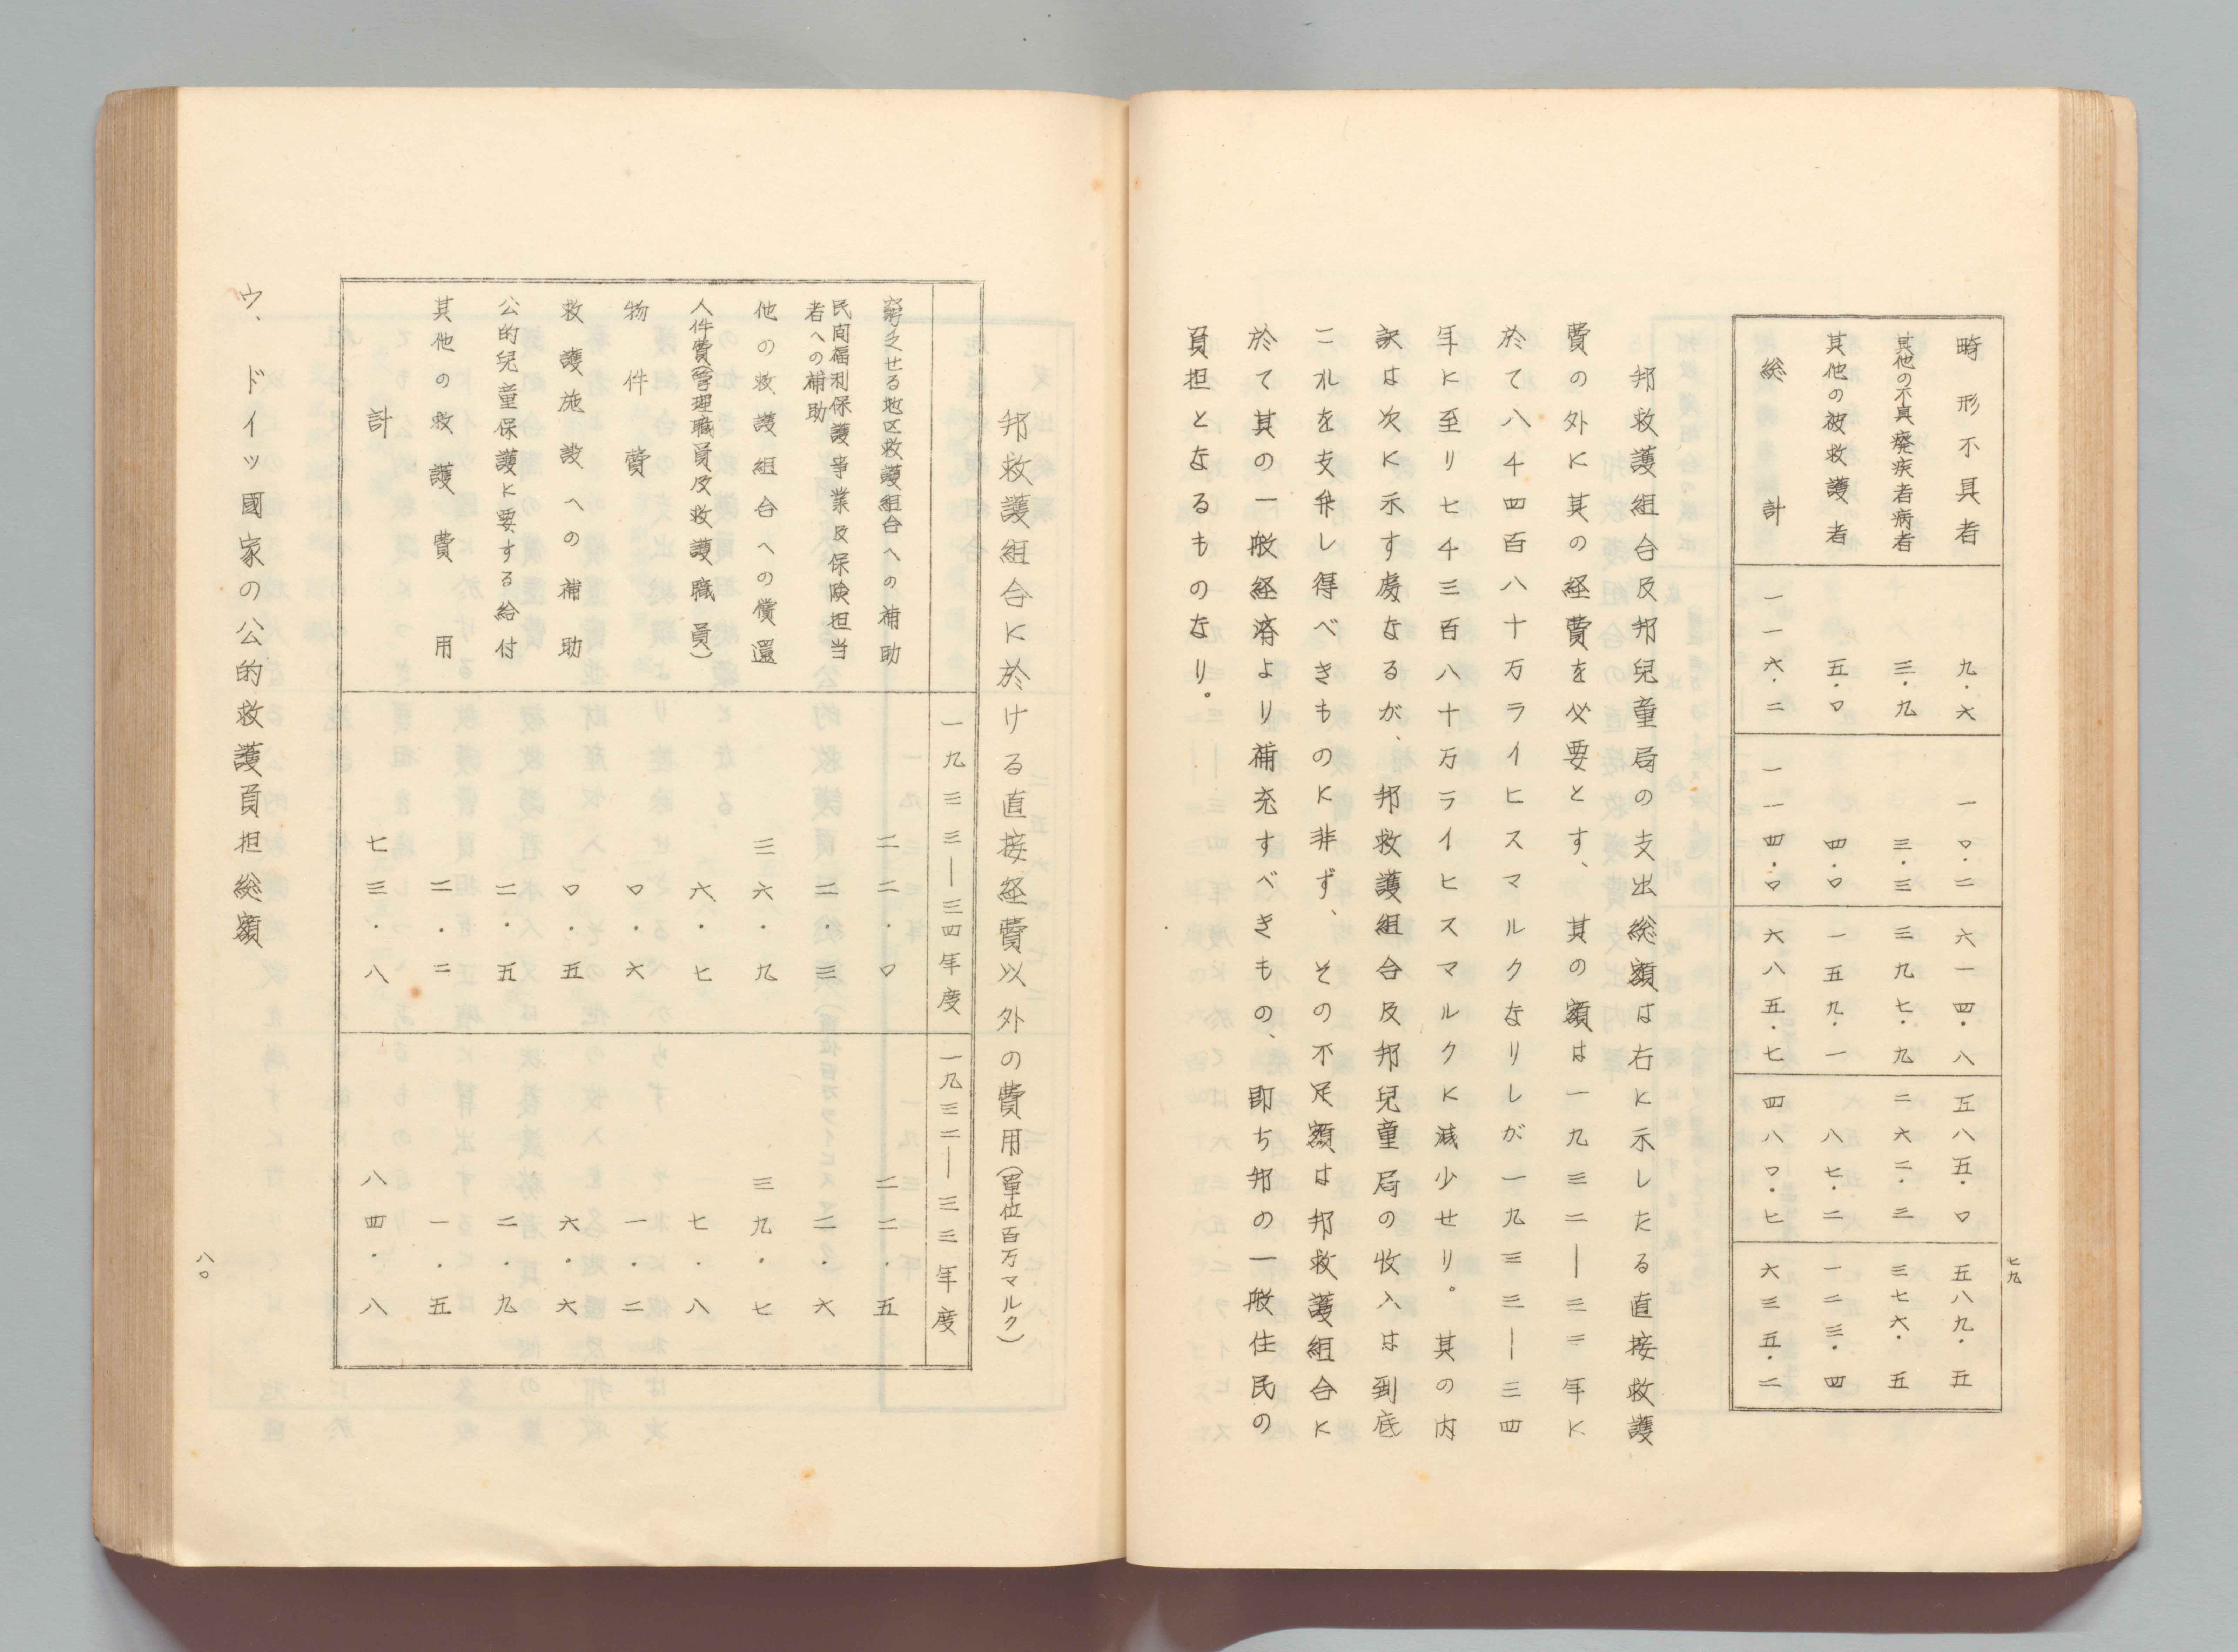 畸形不具者 九・六 一〇・二 六一四・八 五八五・〇 五八九・五
其他の不具癈疾者病者 三・九 三・三 三九七・九 二六二・三 三七六・五
其他の被救護者 五・〇 四・〇 一五九・一 八七・二 一二三・四
総計 一一六・二 一一四・〇 六八五・七 四八〇・七 六三五・二
邦救護組合及邦兒童局の支出総額は右に示したる直接救護
費の外に其の経費を必要とす、其の額は一九三二―三三年に
於て八千四百八十万ライヒスマルクなりしが一九三三―三四
年に至り七千三百八十万ライヒスマルクに減少せり。其の内
訳は次に示す處なるが、邦救護組合及邦兒童局の收入は到底
二れを支弁し得べきものに非ず、その不足額は邦救護組合に
於て其の一般経済より補充すべきもの、即ち邦の一般住民の
負担となるものなり。
七九
邦救護組合に於ける直接経費以外の費用(單位百万マルク)
一九三三―三四年度 一九三二―三三年度
窮乏せる地区救護組合への補助 二二・〇 二二・五
民間福利保護事業及保険担当
者への補助 二・三 二・六
他の救護組合への償還 三六・九 三九・七
人件費(管理職員及救護職員) 六・七 七・八
物件費 〇・六 一・二
救護施設への補助 〇・五 六・六
公的兒童保護に要する給付 二・五 二・九
其他の救護費用 二・二 一・五
計 七三・八 八四・八
ウ、ドイツ國家の公的救護負担総額
八〇